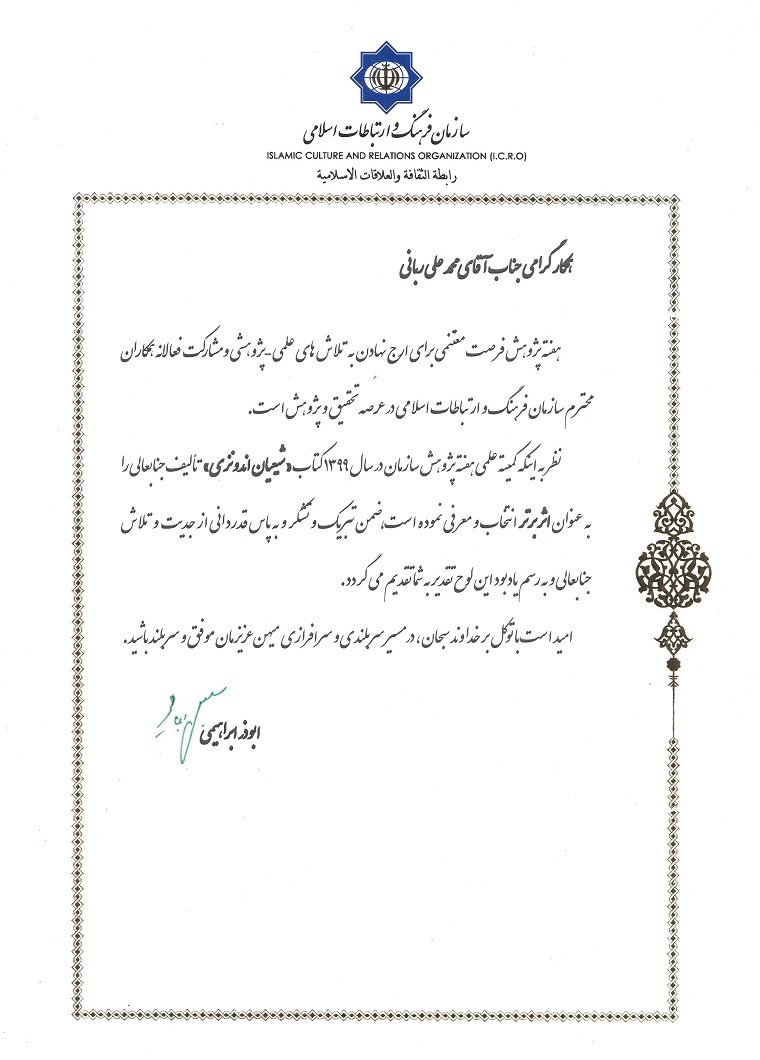 سازمان فرهنگ و ارتباطات اسلامی
ISLAMIC CULTURE AND RELATIONS ORGANIZATION (I.C.R.O)
رابطة الثقافة والعلاقات الاسلامية
همکار گرامی جناب آقای محمد علی ربانی
هفته پژوهش فرصت مغتنمی برای ارج نهادن به تلاش های علمی-پژوهشی و مشارکت فعالانه همکاران
محترم سازمان فرهنگ و ارتباطات اسلامی در عرصه تحقیق و پژوهش است.
نظر به اینکه کمیته علمی هفته پژوهش سازمان در سال ۱۳۹۹ کتاب «شیعیان اندونزی» تألیف جنابعالی را
به عنوان اثر برتر انتخاب و معرفی نموده است، ضمن تبریک و تشکر و به پاس قدردانی از جدیت و تلاش
جنابعالی و به رسم یادبود این لوح تقدیر به شما تقدیم می گردد.
امید است با توکل بر خداوند سبحان، در مسیر سربلندی و سرافرازی میهن عزیزمان موفق و سربلند باشید.
ابوذر ابراهیمی